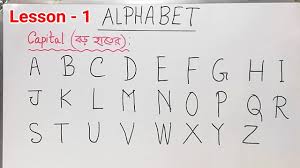 Lesson - 1 ALPHABET
Capital (বড় হাতের) :
A B C D E F G H I
J K L M N O P Q R
S T U V W X Y Z